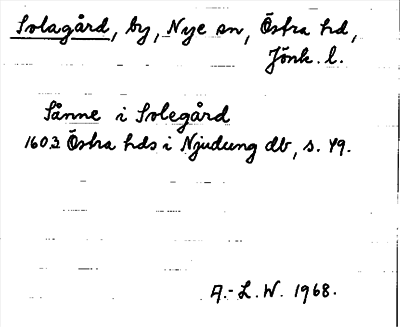 Solagård, by, Nye sn, Östra hd,
Jönk. l.
Sånne i Solegård
1603 Östra hds i Njudung db, s. 49.
A.-L.W. 1968.